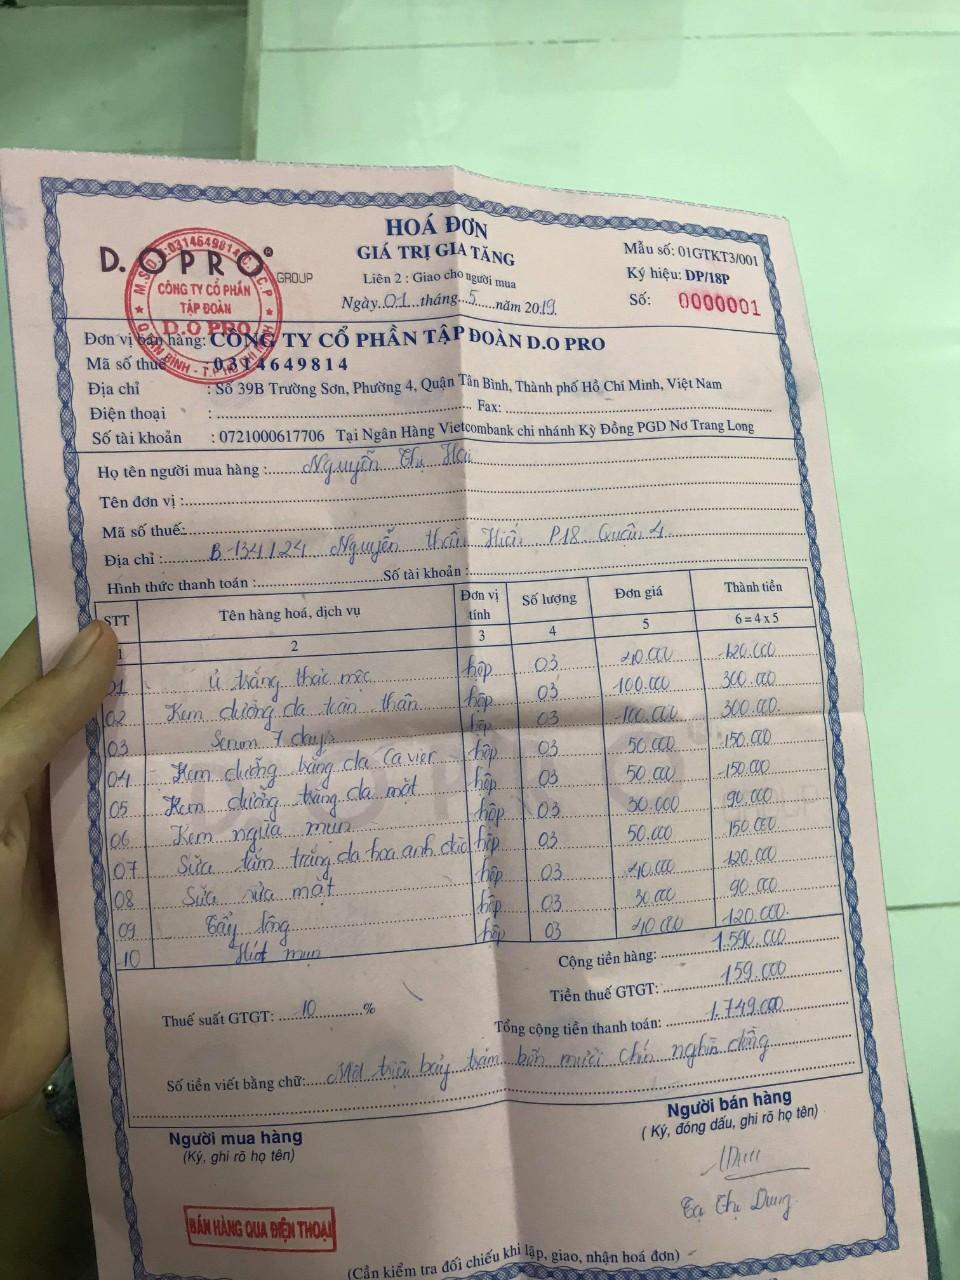 HOÁ ĐƠN
GIÁ TRỊ GIA TĂNG
Liên 2 : Giao cho người mua
Ngày 01 tháng 5 năm 2019
Mẫu số: 01GTKT3/001
Ký hiệu: DP/18P
Số: 0000001
D.OPRO® GROUP
CÔNG TY CỔ PHẦN
TẬP ĐOÀN
D.O PRO
Đơn vị bán hàng: CÔNG TY CỔ PHẦN TẬP ĐOÀN D.O PRO
Mã số thuế : 0314649814
Địa chỉ : Số 39B Trường Sơn, Phường 4, Quận Tân Bình, Thành phố Hồ Chí Minh, Việt Nam
Điện thoại : Fax:
Số tài khoản : 0721000617706 Tại Ngân Hàng Vietcombank chi nhánh Kỳ Đồng PGD Nơ Trang Long
Họ tên người mua hàng : Nguyễn Thị Hai
Tên đơn vị :
Mã số thuế:
Địa chỉ : B-134124 Nguyễn thần Hiến P18 Quận 4
Hình thức thanh toán : Số tài khoản :
STT Tên hàng hoá, dịch vụ Đơn vị tính Số lượng Đơn giá Thành tiền
1 2 3 4 5 6 = 4 x 5
01 ủ trắng thảo mộc hộp 03 40.000 120.000
02 Kem dưỡng da toàn thân hộp 03 100.000 300.000
03 Serum 7 days hộp 03 100.000 300.000
04 Kem dưỡng trắng da Cavier hộp 03 50.000 150.000
05 Kem dưỡng trắng da mặt hộp 03 50.000 150.000
06 Kem ngừa mụn hộp 03 30.000 90.000
07 Sữa tắm trắng da hoa anh đào hộp 03 50.000 150.000
08 Sữa rửa mặt hộp 03 40.000 120.000
09 Tẩy lông hộp 03 30.000 90.000
10 Hút mụn hộp 03 40.000 120.000
Cộng tiền hàng: 1.590.000
Thuế suất GTGT: 10 % Tiền thuế GTGT: 159.000
Tổng cộng tiền thanh toán: 1.749.000
Số tiền viết bằng chữ: Một triệu bảy trăm bốn mươi chín nghìn đồng
Người mua hàng
(Ký, ghi rõ họ tên)
Người bán hàng
( Ký, đóng dấu, ghi rõ họ tên)
Tạ Thị Dung
BÁN HÀNG QUA ĐIỆN THOẠI
(Cần kiểm tra đối chiếu khi lập, giao, nhận hoá đơn)